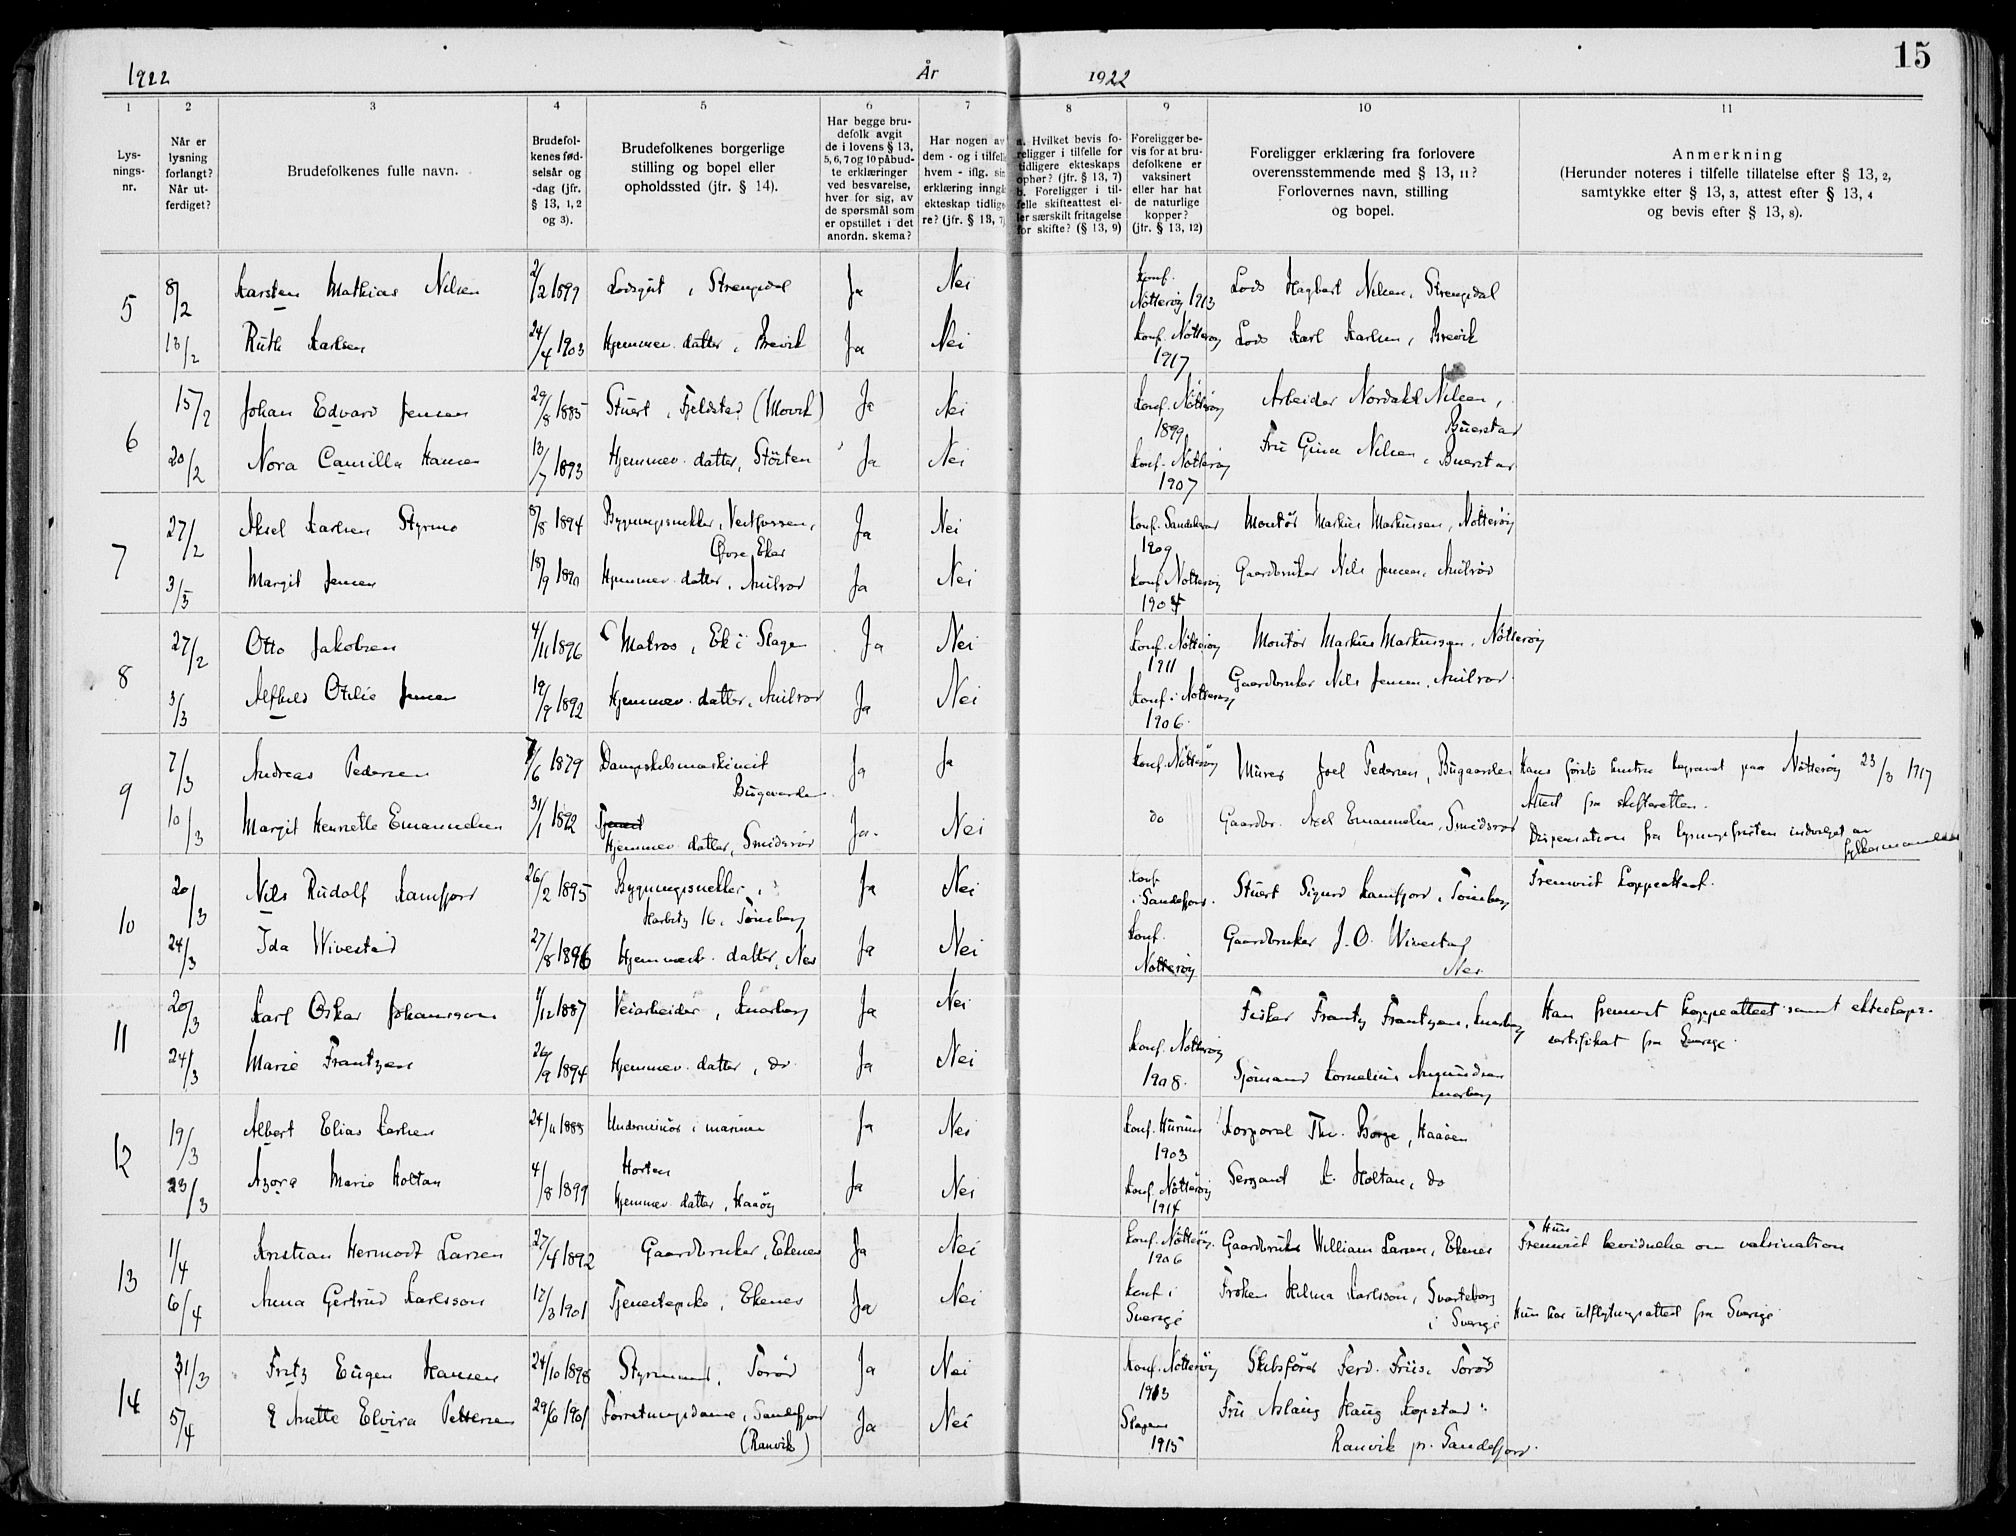 15
1922 År 1922
1 2 3 4 5 6 7 8 9 10 11
Lysningsnr.
Når er lysning forlangt? Når utferdiget?
Brudefolkenes fulle navn.
Brudefolkenes fødselsår og -dag (jfr. § 13, 1, 2 og 3).
Brudefolkenes borgerlige stilling og bopel eller opholdssted (jfr. § 14).
Har begge brudefolk avgit de i lovens § 13, 5, 6, 7 og 10 påbudte erklæringer ved besvarelse, hver for sig, av de spørsmål som er opstillet i det anordn. skema?
Har nogen av dem - og i tilfelle hvem - iflg. sin erklæring inngått ekteskap tidligere? (jfr. § 13, 7)
a. Hvilket bevis foreligger i tilfelle for tidligere ekteskaps ophør? (jfr. § 13, 7) b. Foreligger i tilfelle skifteattest eller særskilt fritagelse for skifte? (§ 13, 9)
Foreligger bevis for at brudefolkene er vaksinert eller har hat de naturlige kopper? (jfr. § 13, 12)
Foreligger erklæring fra forlovere overensstemmende med § 13, 11? Forlovernes navn, stilling og bopel.
Anmerkning (Herunder noteres i tilfelle tillatelse efter § 13, 2, samtykke efter § 13, 3, attest efter § 13, 4 og bevis efter § 13, 8).
5 8/2 Karsten Mathias Nilsen 2/2 1899 Losgut, Strengsdal Ja Nei Konf. Nøtterøy 1913 Lods Hagbart Nilsen, Strengsdal
13/2 Ruth Karlsen 24/4 1903 Hjemmev. datter, Brevik Ja Nei Konf. Nøtterøy 1917 Lods Karl Karlsen, Brevik
6 15/2 Johan Edvard Jensen 29/8 1885 Stuert, Fjeldstad (Movik) Ja Nei Konf. Nøtterøy 1899 Arbeider Nordahl Nilsen, Buerstad
20/2 Nora Camilla Hansen 13/7 1893 Hjemmev. datter, Störten Ja Nei Konf. Nøtterøy 1907 Fru Gina Nilsen, Buerstad
7 27/2 Aksel Karlsen Styrmo 8/8 1894 Bygningssnekker, Vestfossen, Øvre Eker Ja Nei Konf. 1909 Montør Markus Markussen, Nøtterøy
3/3 Margit Jensen 18/9 Hjemmev. datter, Ja Nei Konf. Nøtterøy Gaardbruker Nils Jensen,
8 27/2 Otto Jakobsen 4/11 1896 Matros, Ek i Slagen Ja Nei Konf. Nøtterøy 1911 Montør Markus Markussen, Nøtterøy
3/3 Alfhild Otilie Jensen 19/9 1892 Hjemmev. datter, Ja Nei Konf. i Nøtterøy 1906. Gaardbruker Nils Jensen,
9 7/3 Andreas Pedersen 7/6 1879 Dampskibsmaskinist Bugaarden Ja Ja Konf. Nøtterøy Murer Joel Pedersen, Bugaarden Hans første hustru begravet paa Nøtterøy 23/3 1917
Attest fra skifteretten.
10/3 Margit Henriette Emanuelsen 31/1 1892 Hjemmev. datter, Smidsrød Ja. Nei do Gaardbr. Axel Emanuelsen, Smidsrød Dispensation fra lysningsfristen indvilget av fylkesmanden
10 20/3 Nils Rudolf Kamfjord 26/2 1895 Bygningssnekker, 16, Tønsberg Ja Nei Konf. i Sandefjord. Stuert Sigurd Kamfjord, Tønsberg Fremvist koppeattest.
24/3 Ida Wivestad 27/8 1896 Hjemmev. datter, Nes Ja Nei Konf. Nøtterøy Gaardbruker J. O. Wivestad Nes.
11 20/3 Karl Oskar Johansson 1/12 1887 Veiarbeider, Knarberg Ja Nei Fisker Frantz Frantzen, Knarberg Han fremvist koppeattest samt ekteskapscertifikat fra Sverige.
24/3 Marie Frantzen 26/9 1894 Hjemmev. datter, do Ja Nei Konf. Nøtterøy 1908. Sjømand Kornelius Amundsen Knarberg
12 19/3 Albert Elias Karlsen 24/11 1888 Underminør i marinen Horten Ja Nei Konf. Hurum 1903 Korporal Thv. Borge, Haaöen
23/3 Azora Marie Holtan 4/8 1899 Hjemmev. datter, Haaöy Ja Nei Konf. Nøtterøy 1914 Sergeant K. Holtan, do
13 1/4 Kristian Hermodt Larsen 27/4 1892 Gaardbruker, Ekenes Ja Nei Konf. Nøtterøy. 1906 Gaardbruker William Larsen, Ekenes Hun Fremvist bevidnelse om vaksination
6/4 Anna Gertrud Karlsson 17/3 1901 Tjenestepike, Ekenes Ja Nei Konf i Sverige Frøken Helma Karlsson, Svarteborg i Sverige Hun har utflytningsattest fra Sverige
14 31/3 Fritz Eugen Hansen 24/10 1898 Styrmand, Torød Ja Nei Konf. Nøtterøy 1913 Skibsfører Ferd. Friis, Torød
5/4 Anette Elvira Pettersen 29/6 1901 Forretningsdame, Sandefjord (Ranvik) Ja Nei Slagen 1915 Fru Aslaug Haug Kopstad, Ranvik pr. Sandefjord.